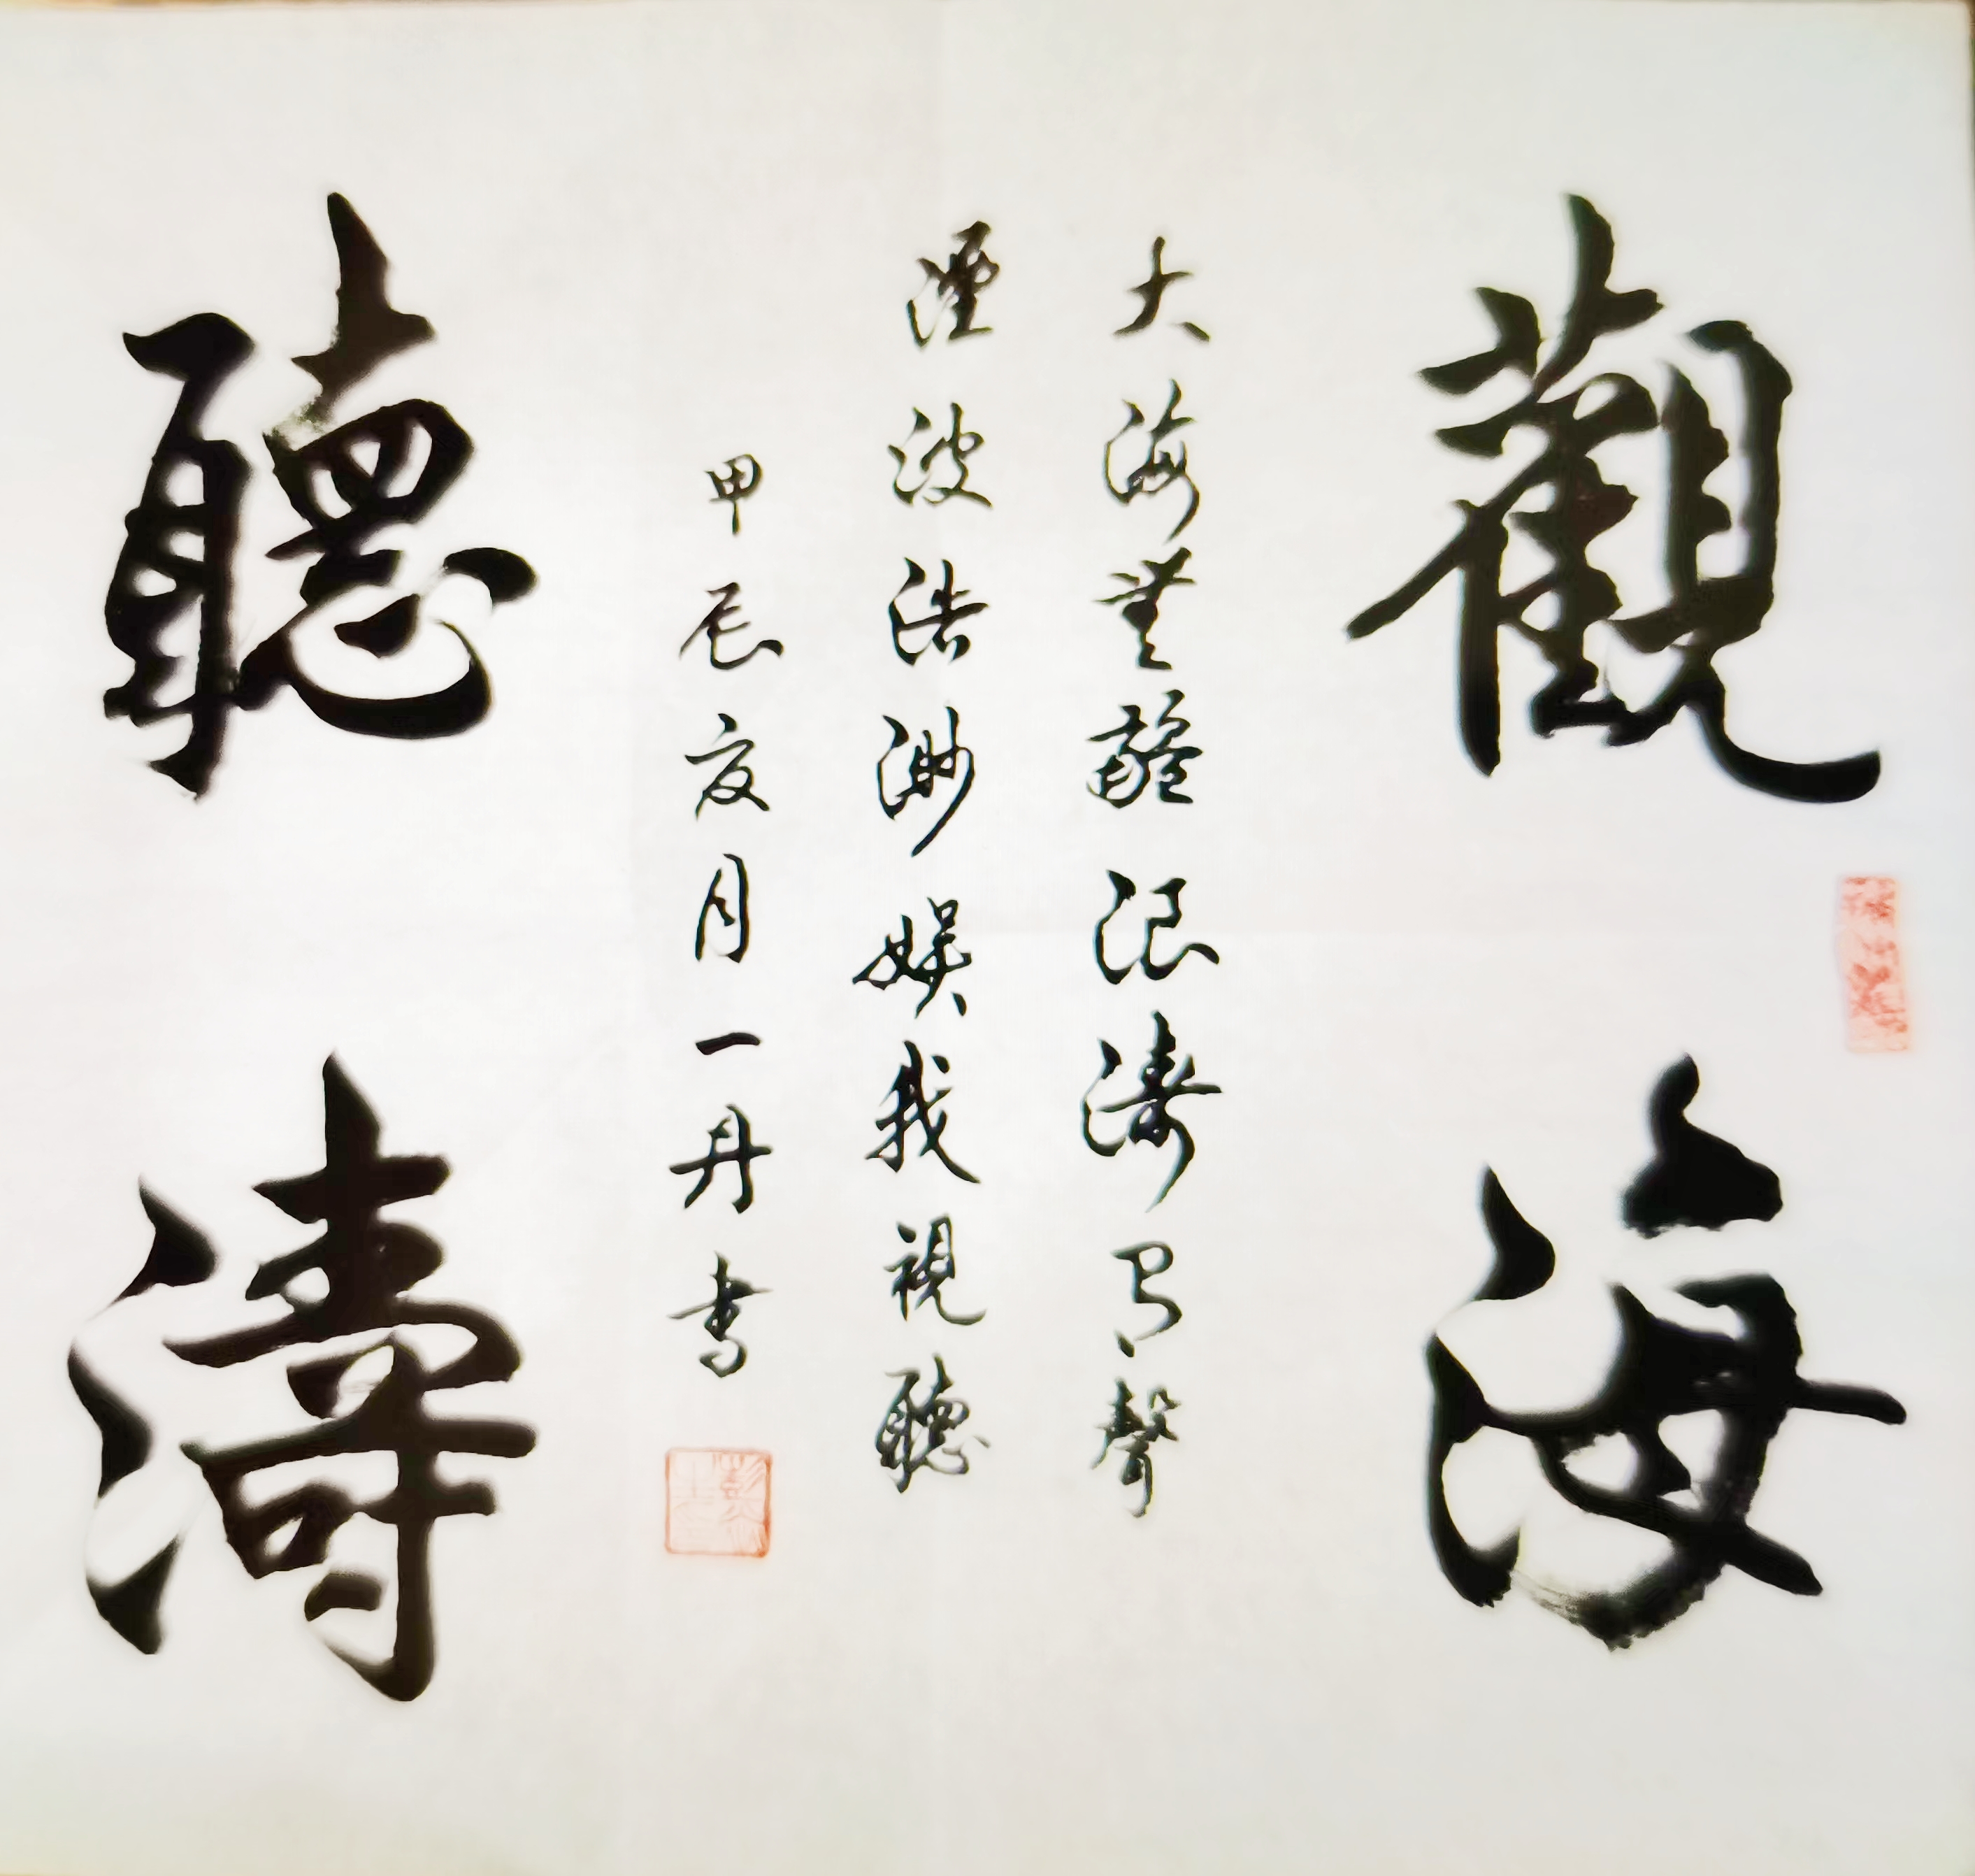 觀海
大海無疆浪濤有聲
湮波浩渺娛我視聽
甲辰夏月一丹書
聽濤